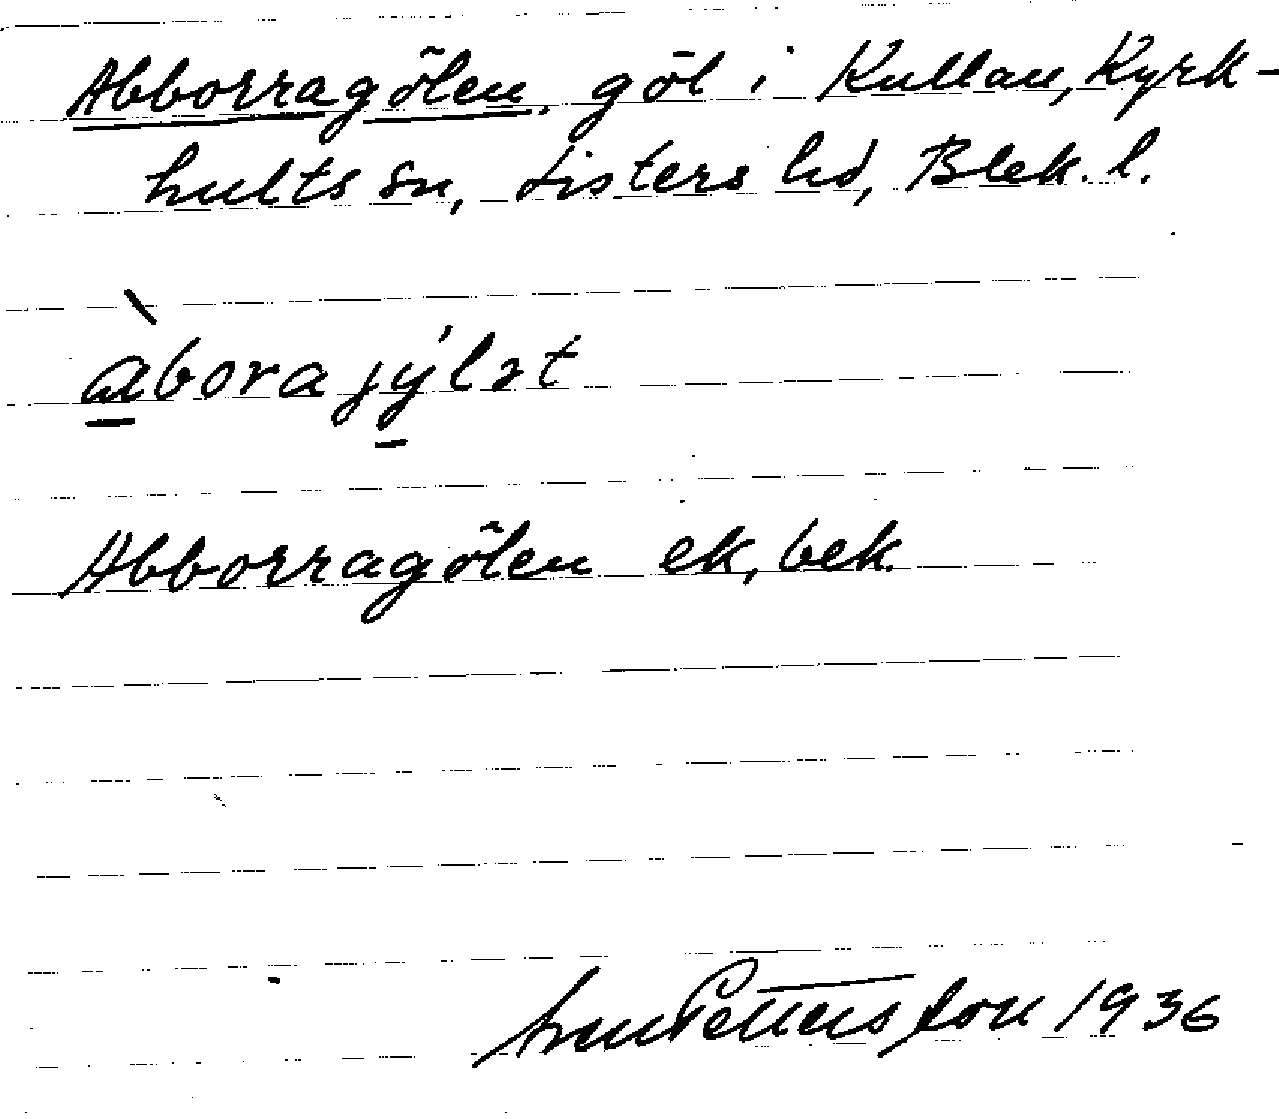 Abborragölen, göl i Kullan, Kyrk-
hults sn, Listers hd, Blek. l.
àborajýlət
Abborragölen ek, bek.
Pettersson 1936